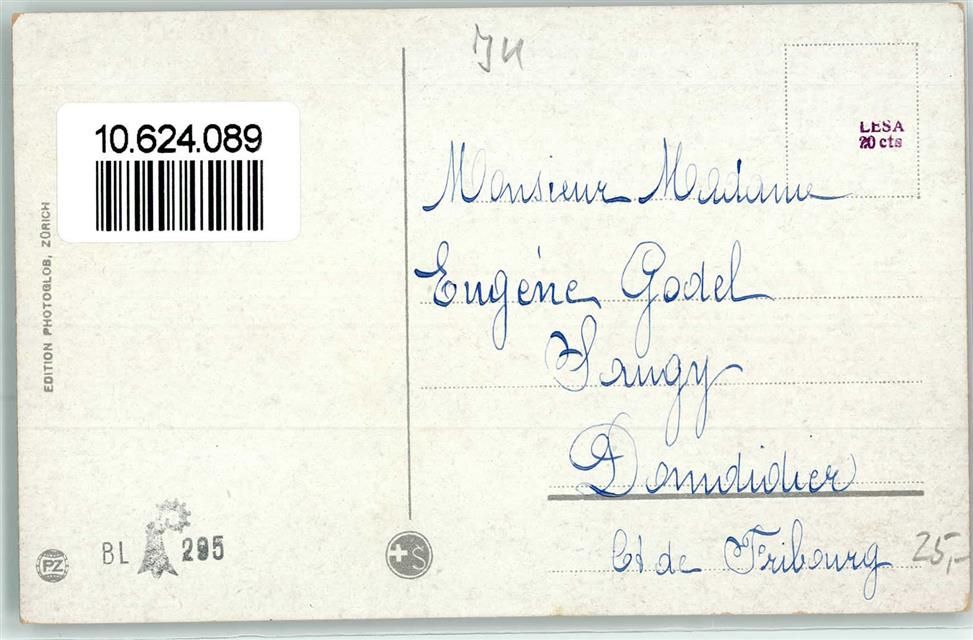 10.624.089
EDITION PHOTOGLOB, ZÜRICH
LESA
20 cts
Monsieur Madame
Eugène Godel
Domdidier
Ct de Fribourg
25,-
BL 295
PZ
+S